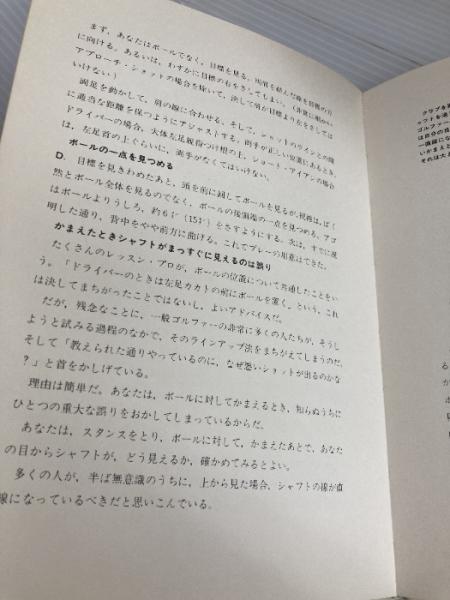 まず，あなたはボールでなく，目標を見る。両肩を結んだ線を目標の方
に向ける。あるいは，わずかに目標の右をさしてもよい。（非常に短い
アプローチ・ショットの場合を除いて，決して肩が目標より左をさしては
いけない）
両足を動かして，肩の線に合わせる。そして，シャフトのラインとの間
に適当な距離を保つようにアジャストする。両手が正しい位置にあるとき，
ドライバーの場合，大体左足親指つけ根の上，ショート・アイアンの場合
は，左足首の上ぐらいに，両手がなくてはいけない。
ボールの一点を見つめる
D. 目標を見きわめたあと，頭を前に回してボールを見るが，視線は，ばく
然とボール全体を見るのでなく，ボールの後測端の一点を見つめる。アゴ
はボールよりうしろ，約6㌅（15㌢）をさすようにする。次は，すでに説
明した通り，背中をやや前方に曲げる。これでプレーの用意はできた。
かまえたときシャフトがまっすぐに見えるのは誤り
たくさんのレッスン・プロが，ボールの位置について共通したことをい
う。「ドライバーのときは左足カカトの前にボールを置く」という，これ
は決してまちがったことではないし，よいアドバイスだ。
だが，残念なことに，一般ゴルファーの非常に多くの人たちが，そうし
ようと試みる過程のなかで，そのラインアップ法をまちがえてしまうのだ。
そして「教えられた通りやっているのに，なぜ悪いショットが出るのかな
？」と首をかしげている。
理由は簡単だ。あなたは，ボールに対してかまえるとき，知らぬうちに
ひとつの重大な誤りをおかしてしまっているからだ。
あなたは，スタンスをとり，ボールに対して，かまえたあとで，あなた
の目からシャフトが，どう見えるか，確かめてみるとよい。
多くの人が，半ば無意識のうちに，上から見た場合，シャフトの線が直
線になっているべきだと思いこんでいる。
クラブを
ャフトを通
ゴルファー
は自分の目
一直線にな
いかまえと
それは大
る